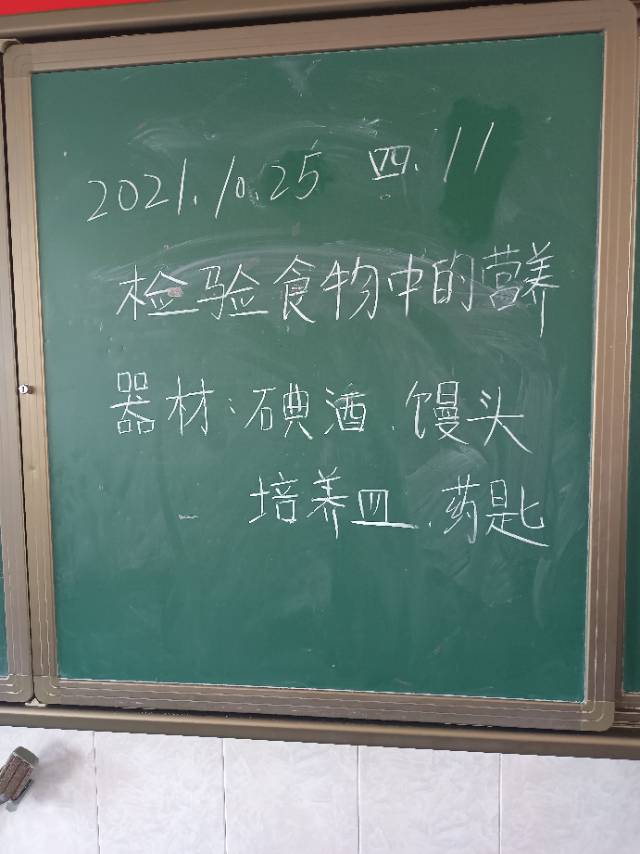 2021.10.25 四.11
检验食物中的营养
器材:碘酒.馒头
培养皿.药匙